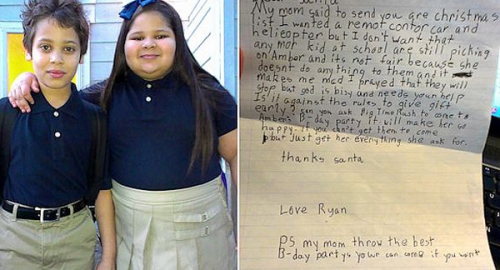 Santa
My mom said to send you are christmas
list I wanted a remot contor car and
helicopter but I don't want that
any mor kid at school are still picking
on Amber and its not fair because she
doesnt do anything to them and it
makes me mad I prayed that they will
stop but god is bisy and needs your help
Is it against the rules to give gift
early? can you ask Big Time Rush to come to
Ambers B-day party it will make her so
happy. If you can't get them to come
but just get her everything she ask for.
thanks santa
Love Ryan
PS my mom throw the best
B-day partys you can come if you want